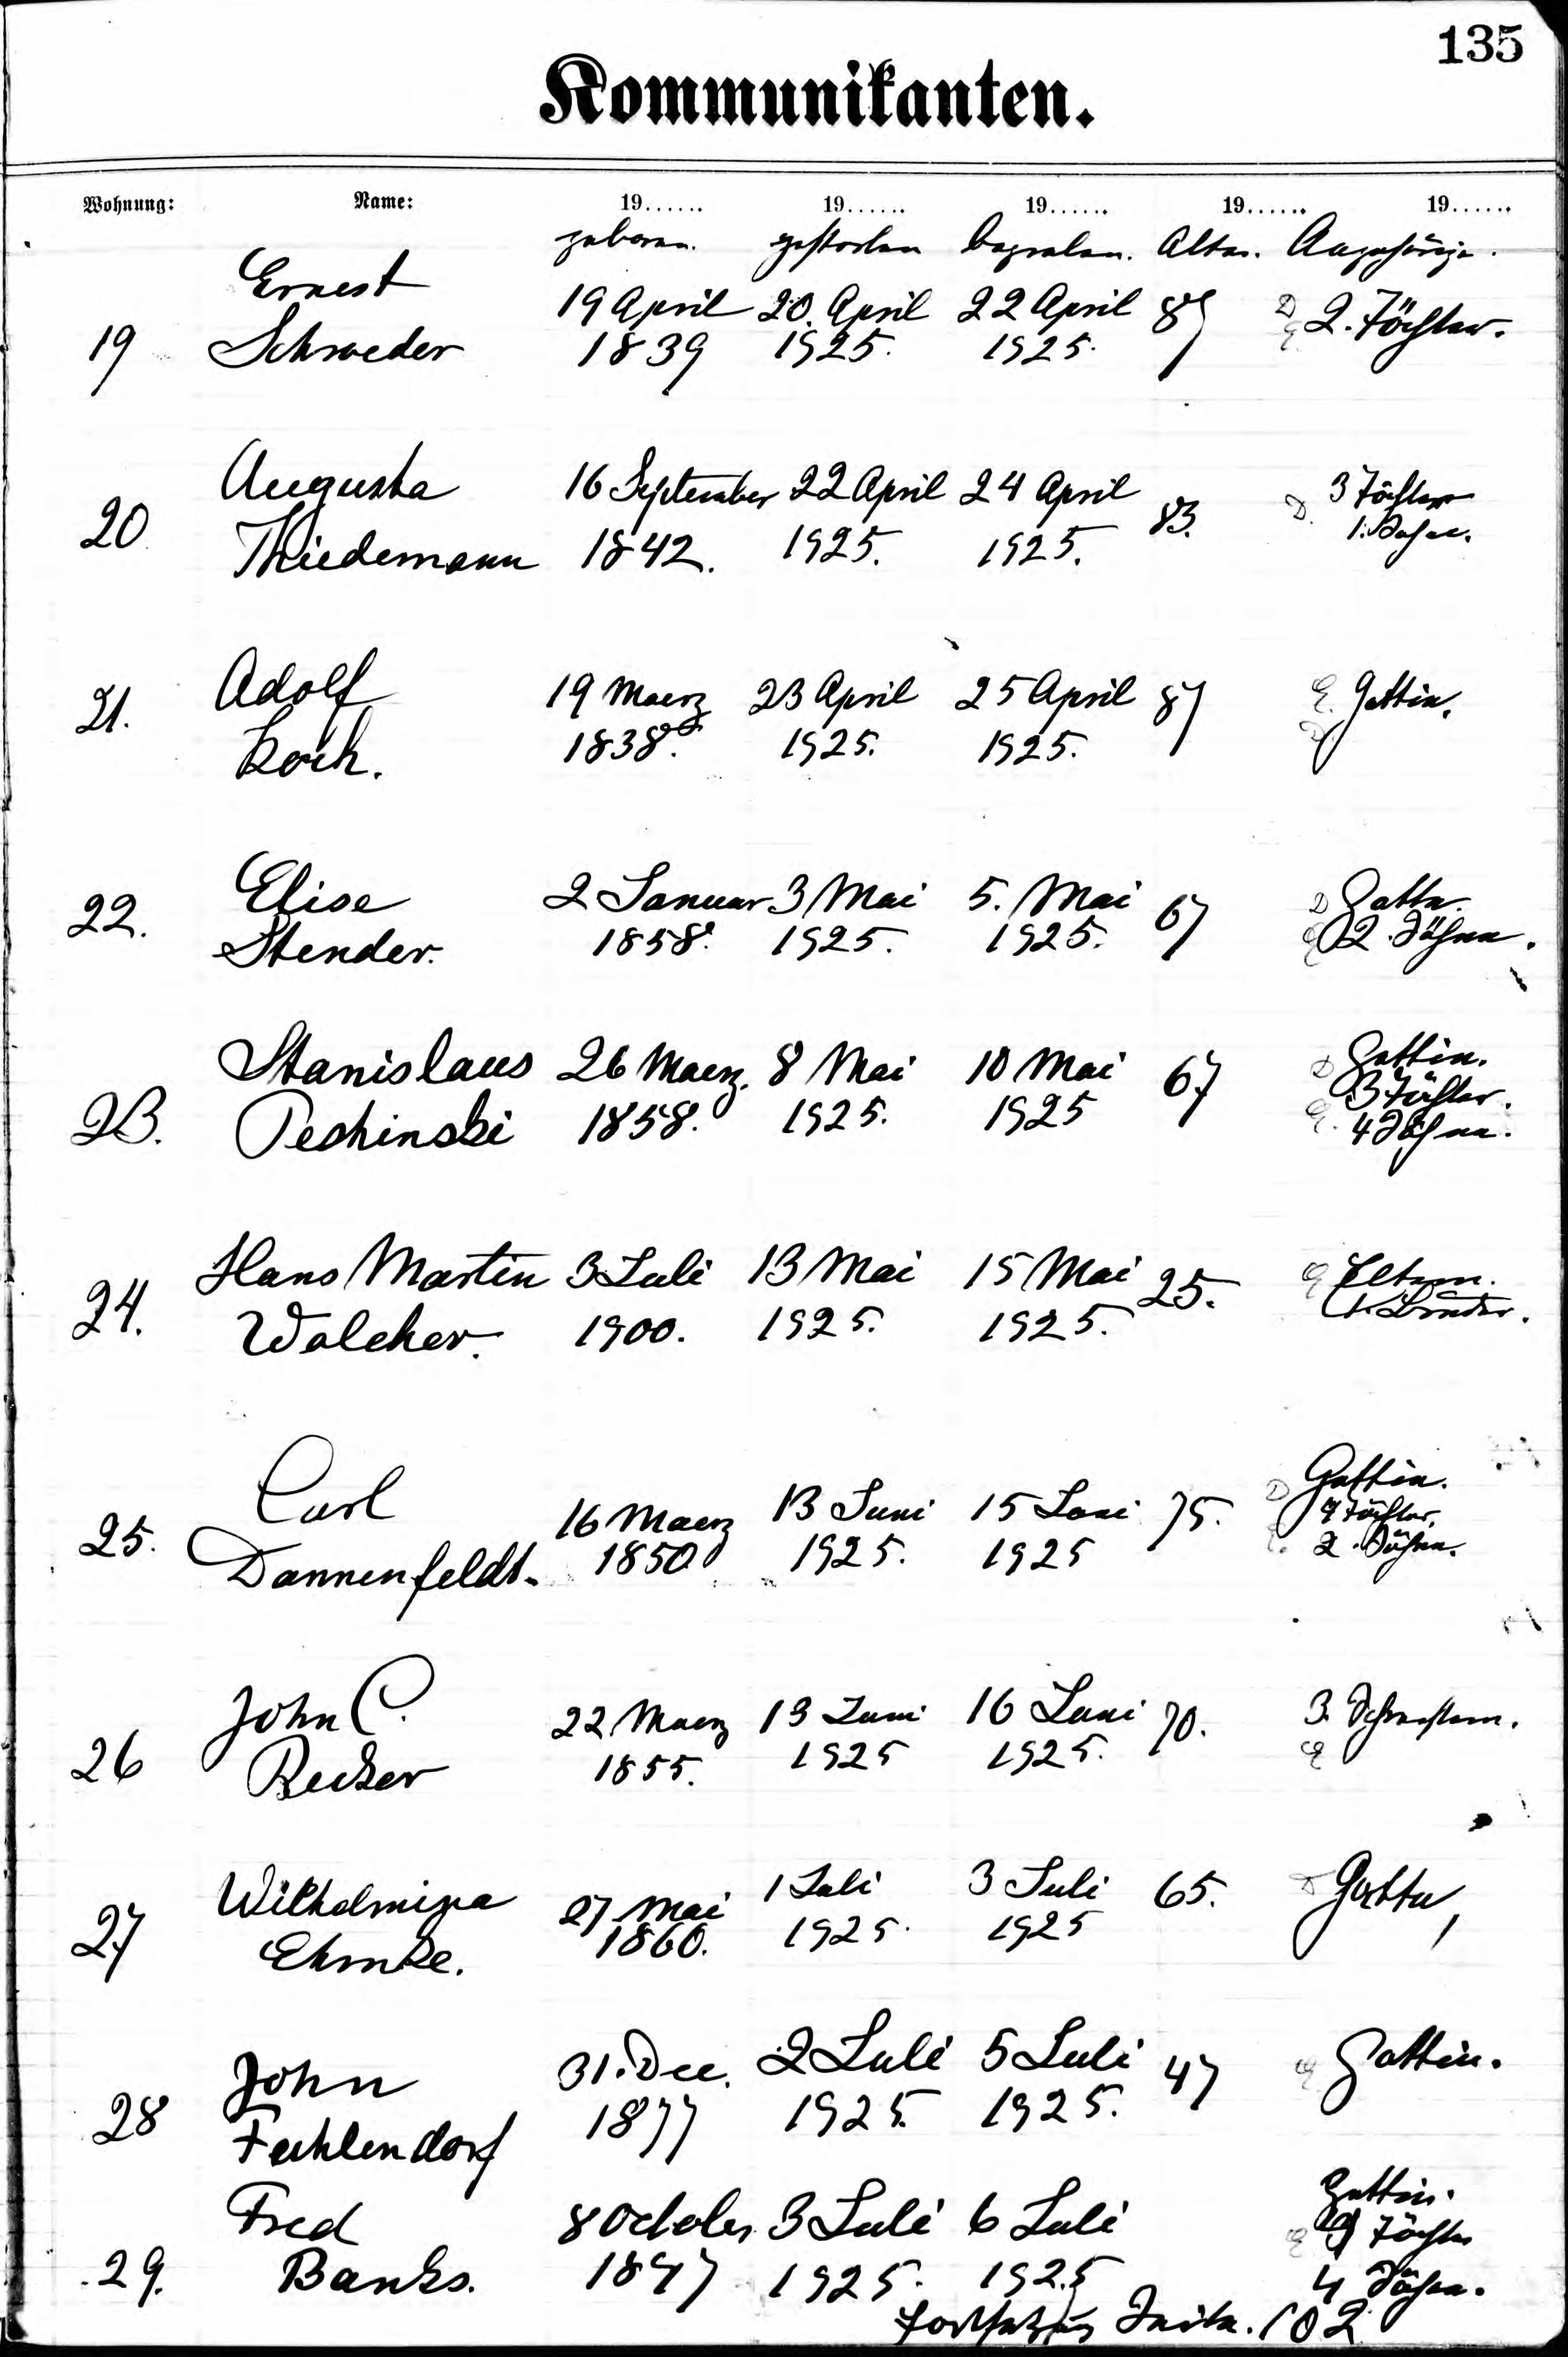 135
Kommunikanten.
Wohnung: Name: 19...... 19...... 19...... 19...... 19......
geboren. gestorben begraben. Alter. Angehörige.
Ernest 19 April 20. April 22 April
19 Schroeder 1839 1925. 1925. D 2. Töchter.
E.
Augusta 16 September 22 April 24 April 83. D. 3 Töchter
20 Thiedemann 1842. 1925. 1925. 1. Sohn.
Adolf 19 Maerz 23 April 25 April 87 E. Gattin.
21. Koch. 1838. 1925. 1925.
Elise 2 Januar 3 Mai 5. Mai 67 D Gatte.
22. Stender. 1858. 1925. 1925. E 2. Söhne.
Stanislaus 26 Maerz. 8 Mai 10 Mai 67 D Gattin.
3 Töchter.
23. Peshinski 1858. 1925. 1925 E. 4 Söhne.
Hans Martin 3 Juli 13 Mai 15 Mai 25. E Eltern.
24. Walcher. 1900. 1925. 1925. 1. Bruder.
Carl 16 Maerz 13 Juni 15 Juni 75. D Gattin.
Töchter.
25. Dannenfeldt. 1850 1925. 1925 E. 2. Söhne.
John C. 22 Maerz 13 Juni 16 Juni 70. 3. Schwestern.
26 Becker 1855. 1925 1925. E
Wilhelmina 27 Mai 1 Juli 3 Juli 65. D Gatte,
27 Ehmke. 1860. 1925. 1925
John 31. Dec. 2 Juli 5 Juli 47 E Gattin.
28 Fehlendorf 1877 1925. 1925.
Fred 8 October 3 Juli 6 Juli Gattin.
E Töchter
29. Banks. 1847 1925. 1925 4 Söhne.
Fortsetzung Seite. 102